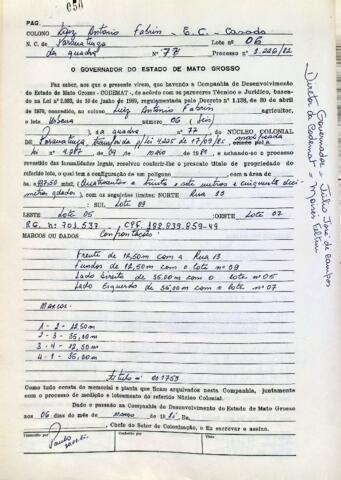 PAG.
COLONO Luiz Antonio Fabrin - E.C. - Casado
N. C. de Paranatinga Lote nº 06
da quadra Nº 77 Processo nº 3.226/82
O GOVERNADOR DO ESTADO DE MATO GROSSO
Faz saber, aos que o presente virem, que havendo a Companhia de Desenvolvimento
do Estado de Mato Grosso - CODEMAT -, de acordo com os pareceres Técnico e Jurídico, basea-
da na Lei nº de de junho de regulamentada pelo Decreto nº de 30 de abril
de concedido ao Luiz Antonio Fabrin agricultor,
o lote Urbano NÚMERO 06 (seis)
da quadra nº 77 DO NÚCLEO COLONIAL
de Paranatinga
Lei nº 4.087 de 04 de maio de e achando-se o processo
revestido das formalidades legais, resolveu conferir-lhe o presente título de propriedade do
referido lote, o qual tem a configuração de um polígono com a área de
437,50 (Quatrocentos e trinta e sete metros e cinquenta deci-
metros qdados), com os seguintes limites: NORTE Rua 13
SUL Lote 09
LESTE Lote 05 :OESTE Lote 07
R.G. nº 701.537 CPF. 182.839.859-49
MARCOS OU DADOS Confrontações:
Frente de 12,50m com a Rua 13
Fundos de 12,50m com o lote nº 09
Lado direito de 35,00m com o lote nº 05
Lado Esquerdo de 35,00m com o lote nº 07
Marcos:
1 - 2 - 12,50m
2 - 3 - 35,00m
3 - 4 - 12,50m
4 - 1 - 35,00m
título nº 001759
Como tudo consta do memorial e planta que ficam arquivados nesta Companhia, juntamente
com o processo de medição e loteamento do referido Núcleo Colonial.
Dado e passado na Companhia de Desenvolvimento do Estado de Mato Grosso
aos 06 dias do mês de março de
Chefe do Setor de Colonização, o fiz escrever e assino.
Governador - Júlio José de Campos
Diretor da Codemat - Moisés Feltrin